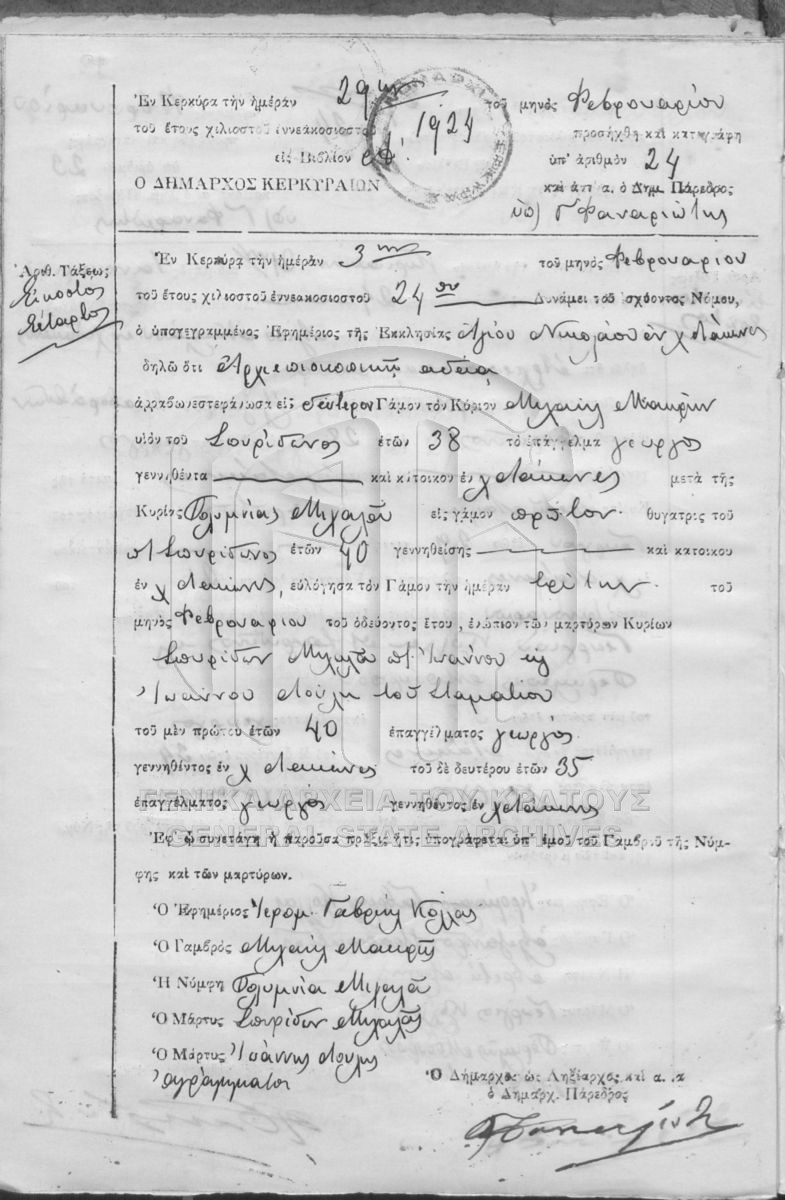 Ἐν Κερκύρᾳ τὴν ἡμέραν 29ην τοῦ μηνὸς Φεβρουαρίου
τοῦ ἔτους χιλιοστοῦ ἐννεακοσιοστοῦ 1924 προσήχθη καὶ κατεγράφη
εἰς Βιβλίον ὑπ' ἀριθμὸν 24
Ο ΔΗΜΑΡΧΟΣ ΚΕΡΚΥΡΑΙΩΝ καὶ ἀντ' α. ὁ Δημ. Πάρεδρος
ὑπ) Γ Φαναριώτης
Ἐν Κερκύρᾳ τὴν ἡμέραν 3ην τοῦ μηνὸς Φεβρουαρίου
Ἀριθ. Τάξεως
Εἰκοστὸς
τέταρτος
τοῦ ἔτους χιλιοστοῦ ἐννεακοσιοστοῦ 24ου Δυνάμει τοῦ ἰσχύοντος Νόμου,
ὁ ὑπογεγραμμένος Ἐφημέριος τῆς Ἐκκλησίας Ἁγίου Νικολάου ἐν χ
δηλῶ ὅτι Ἀρχιεπισκοπικῇ ἀδείᾳ
ἀρραβωνεστεφάνωσα εἰς δεύτερον Γάμον τὸν Κύριον Μιχαὴλ Μακρῆν
υἱὸν τοῦ Σπυρίδωνος ἐτῶν 38 τὸ ἐπάγγελμα γεωργὸς
γεννηθέντα καὶ κάτοικον ἐν χ μετὰ τῆς
Κυρίας Πολυμνίας Μιχαλᾶ εἰς γάμον πρῶτον θυγατρὸς τοῦ
πτ Σπυρίδωνος ἐτῶν 40 γεννηθείσης καὶ κατοίκου
ἐν χ , εὐλόγησα τὸν Γάμον τὴν ἡμέραν τρίτην τοῦ
μηνὸς Φεβρουαρίου τοῦ ὁδεύοντος ἔτου, ἐνώπιον τῶν μαρτύρων Κυρίων
Σπυρίδων Μιχαλᾶ πτ Ἰωάννου
Ἰωάννου Λούλη τοῦ Σταματίου
τοῦ μὲν πρώτου ἐτῶν 40 ἐπαγγέλματος γεωργός
γεννηθέντος ἐν χ τοῦ δὲ δευτέρου ἐτῶν 35
ἐπαγγέλματος γεωργὸς γεννηθέντος ἐν χ
ΓΕΝΙΚΑ ΑΡΧΕΙΑ ΤΟΥ ΚΡΑΤΟΥΣ
GENERAL STATE ARCHIVES
Ἐφ' ᾧ συνετάγη ἡ παροῦσα πρᾶξις ἥτις ὑπογράφεται ὑπ' ἐμοῦ τοῦ Γαμβροῦ τῆς Νύμ-
φης καὶ τῶν μαρτύρων.
Ὁ Ἐφημέριος Ἱερομ. Γαβριὴλ Κόλλας
Ὁ Γαμβρὸς Μιχαὴλ Μακρῆς
Ἡ Νύμφη Πολυμνία Μιχαλᾶ
Ὁ Μάρτυς Σπυρίδων Μιχαλᾶς
Ὁ Μάρτυς Ἰωάννης Λούλης
ἀγράμματοι
Ὁ Δήμαρχος ὡς Ληξίαρχος καὶ α.
ὁ Δημαρχ. Πάρεδρος